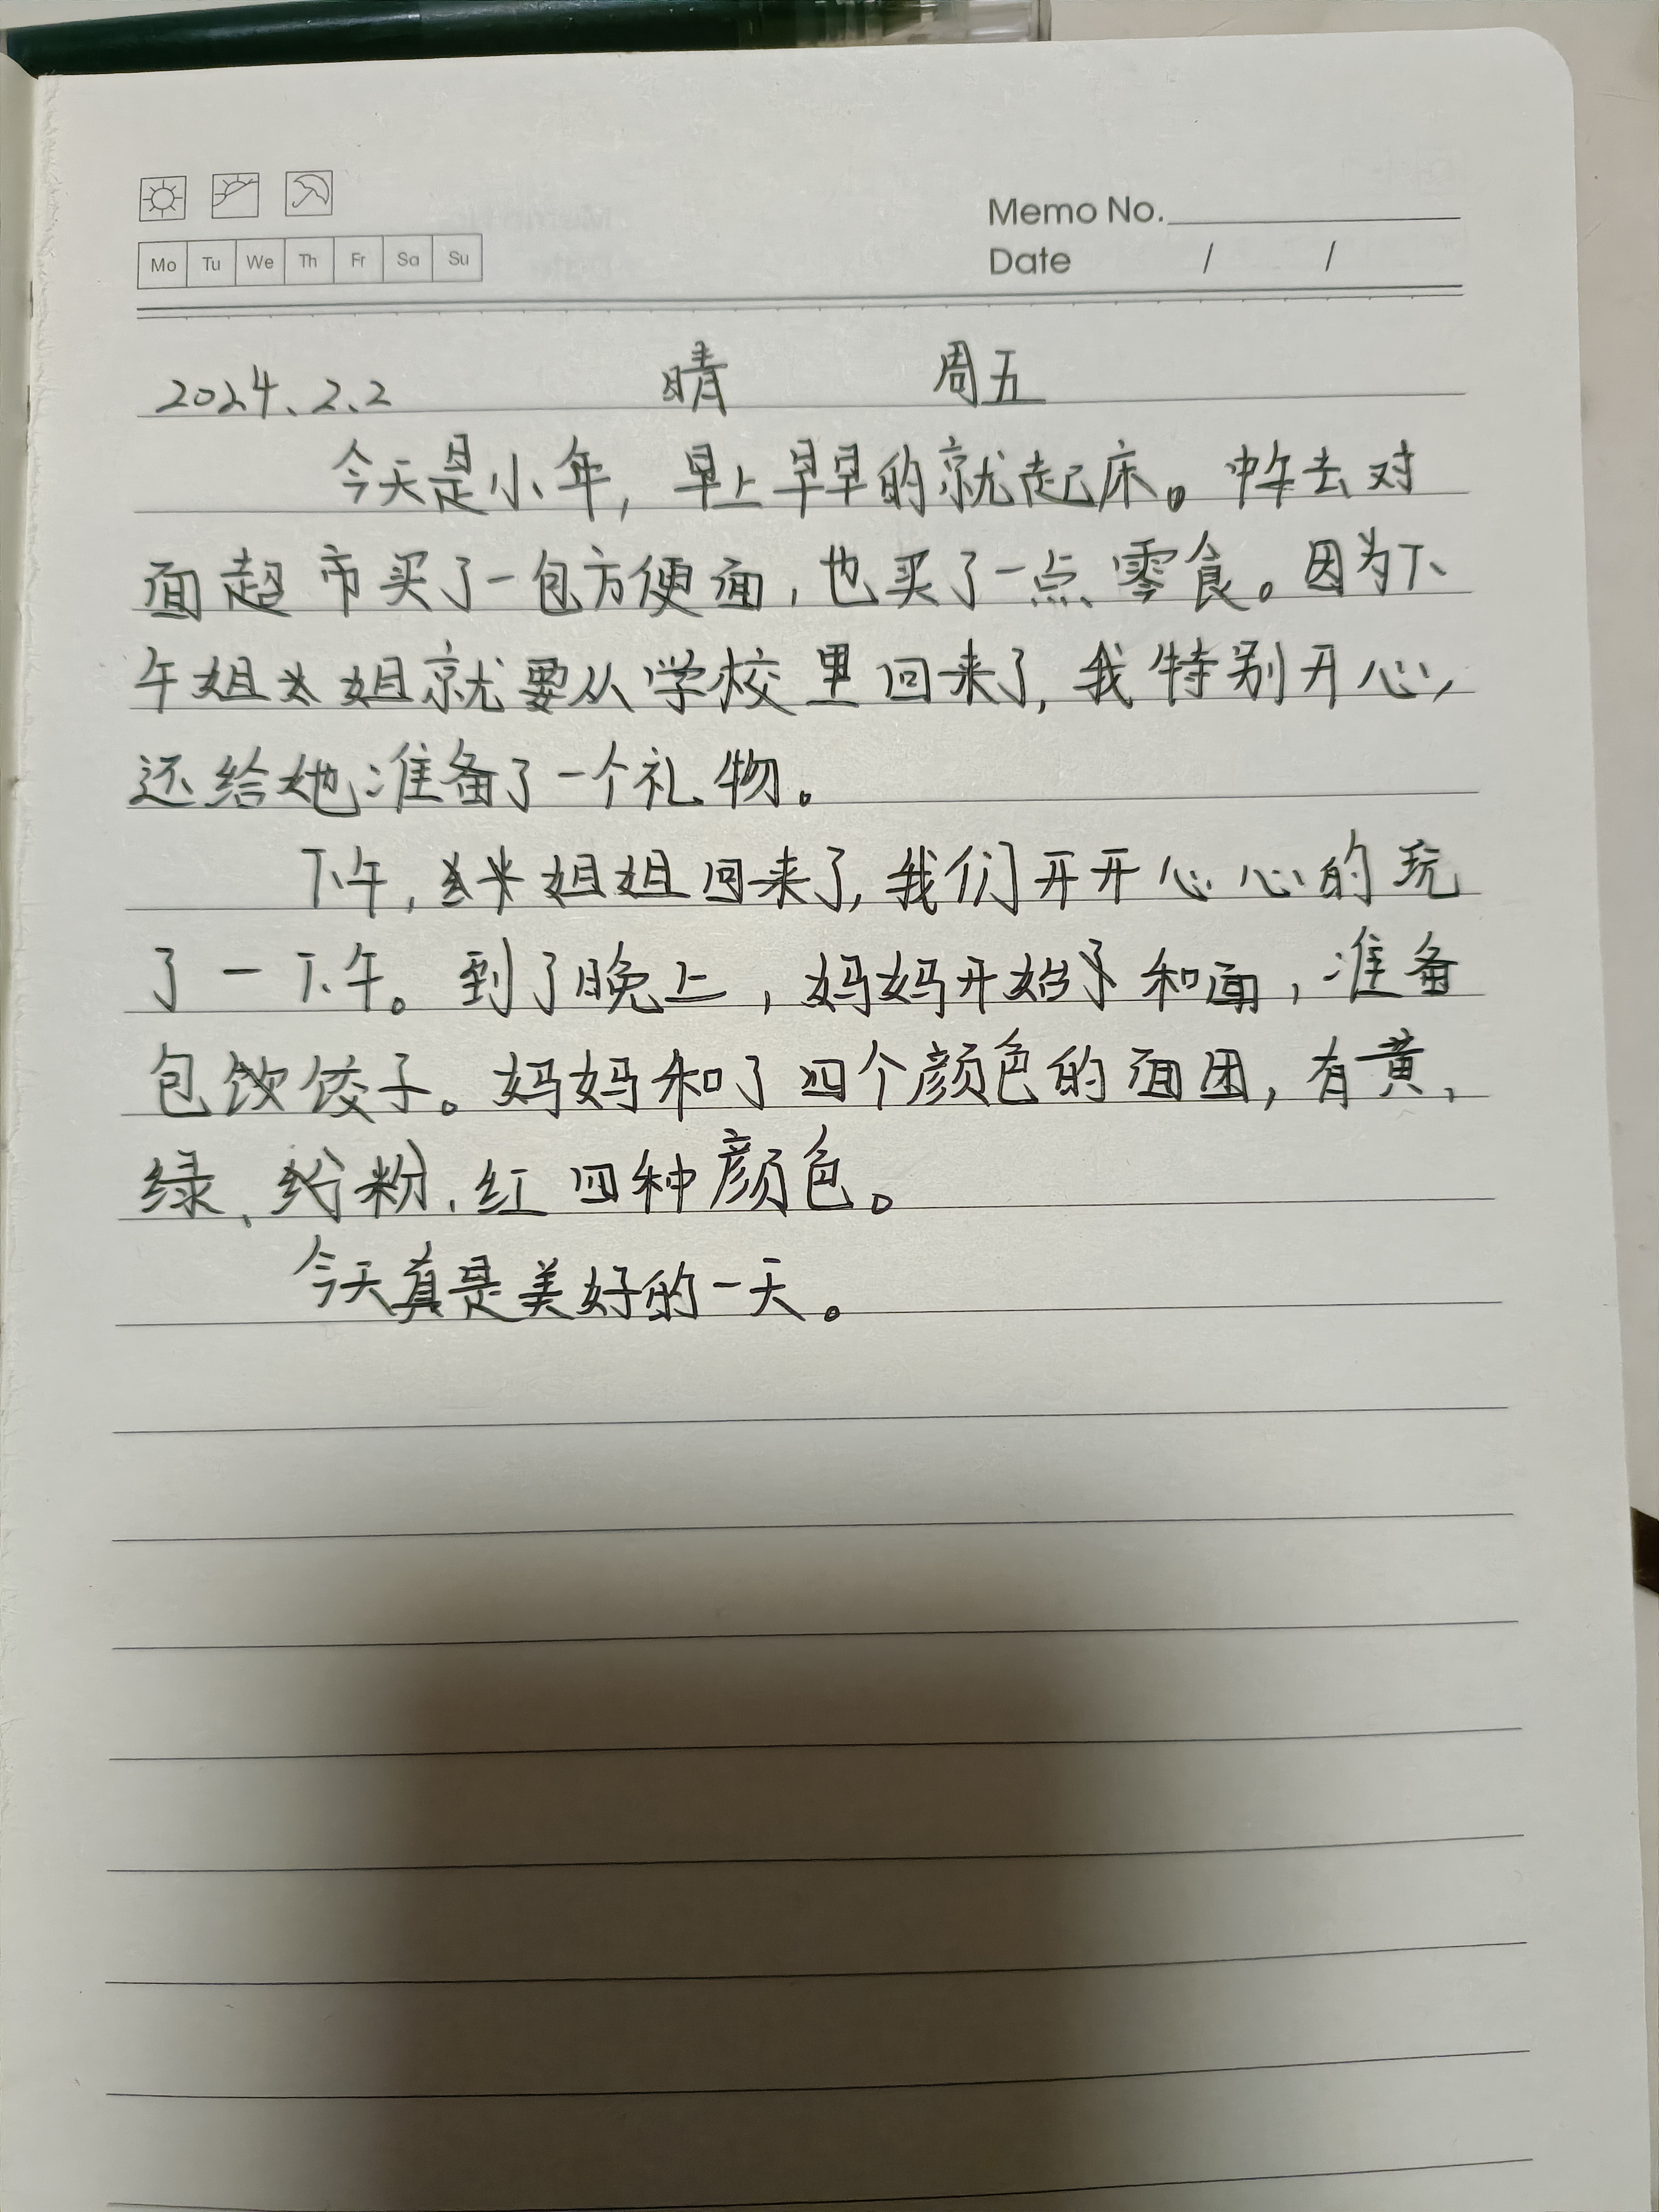 Memo No.
Mo Tu We Th Fr Sa Su
Date / /
2024.2.2 晴 周五
今天是小年，早上早早的就起床。中午去对
面超市买了一包方便面，也买了一点零食。因为下
午姐姐就要从学校里回来了，我特别开心，
还给她准备了一个礼物。
下午，姐姐回来了，我们开开心心的玩
了一下午。到了晚上，妈妈开始和面，准备
包饺子。妈妈和了四个颜色的面团，有黄、
绿、粉、红四种颜色。
今天真是美好的一天。